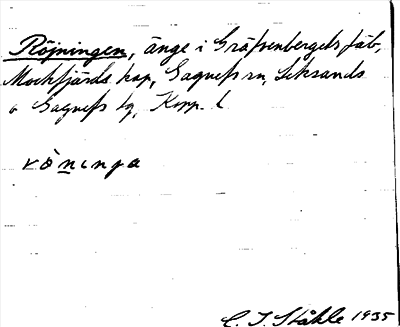 Röjningen, änge i Gräfsenbergets fäb,
Mockfjärds kap, Gagnefs sn, Leksands
o Gagnefs tg, Kopp. l
rö̀ninga
C. I. Ståhle 1935